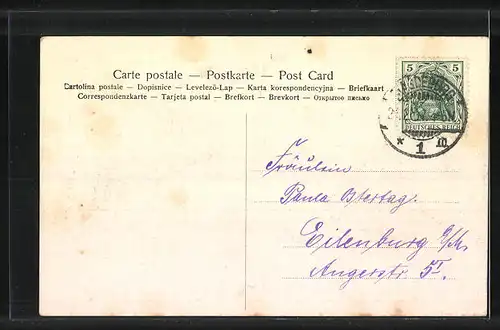 Carte postale – Postkarte – Post Card
Cartolina postale – Dopisnice – Levelező-Lap – Karta korespondencyjna – Briefkaart
Correspondenzkarte – Tarjeta postal – Brefkort – Brevkort – Открытое письмо
5 5
DEUTSCHES REICH
* 1 m
Fräulein
Paula Ostertag.
Eilenburg
Angerstr. 5I